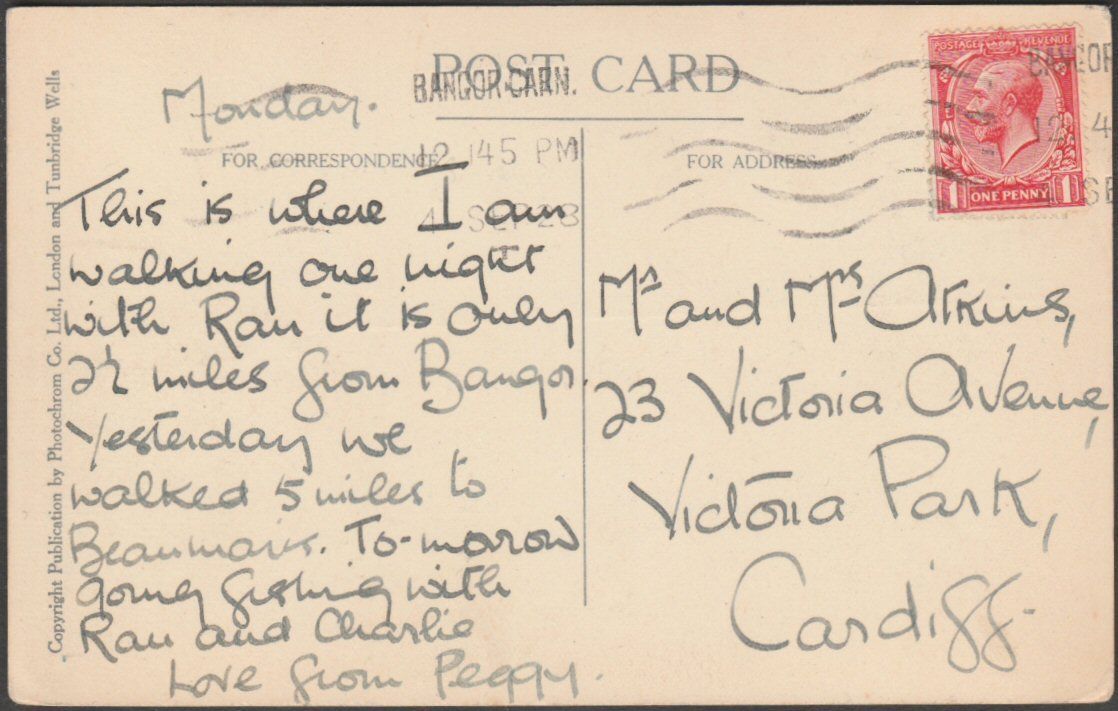 POST CARD
BANGOR CARN.
12 145 PM
4 SEP 23
BANGOR
12 4
SE
POSTAGE REVENUE
1 ONE PENNY 1
FOR CORRESPONDENCE
FOR ADDRESS
Copyright Publication by Photochrom Co. Ltd., London and Tunbridge Wells
Monday.
This is where I am
walking one night
with Ray it is only
2½ miles from Bangor.
Yesterday we
walked 5 miles to
Beaumaris. To-morow
going fishing with
Ray and Charlie
Love from Peggy.
Mr and Mrs Atkins,
23 Victoria Avenue,
Victoria Park,
Cardiff.